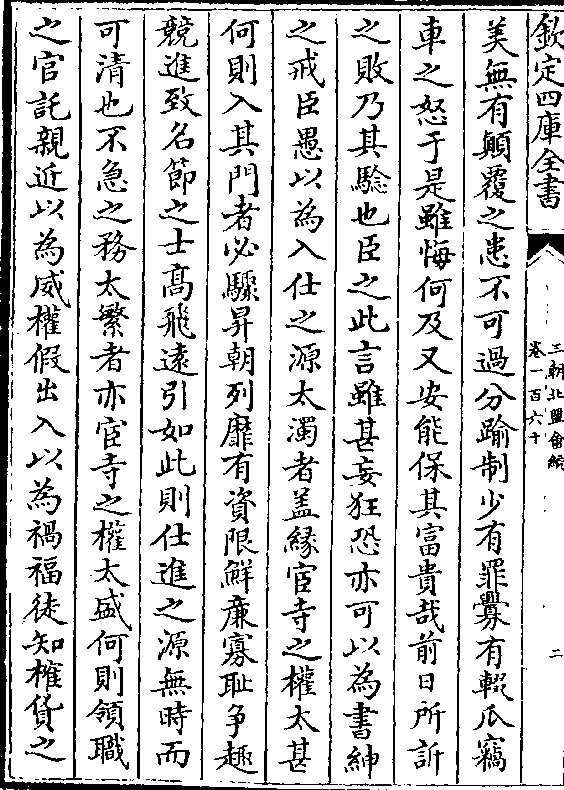 欽定四庫全書
三朝北盟會編
卷一百六十
二
美無有顛覆之患不可過分踰制少有罪釁有輟瓜竊
車之怒于是雖悔何及又安能保其富貴哉前日所訢
之敗乃其騐也臣之此言雖甚妄狂恐亦可以為書紳
之戒臣愚以為入仕之源太濁者盖緣宦寺之權太甚
何則入其門者必驟昇朝列靡有資限鮮亷寡耻争趣
競進致名節之士髙飛逺引如此則仕進之源無時而
可清也不急之務太繁者亦宦寺之權太盛何則領職
之官託親近以為威權假出入以為禍福徒知榷貨之